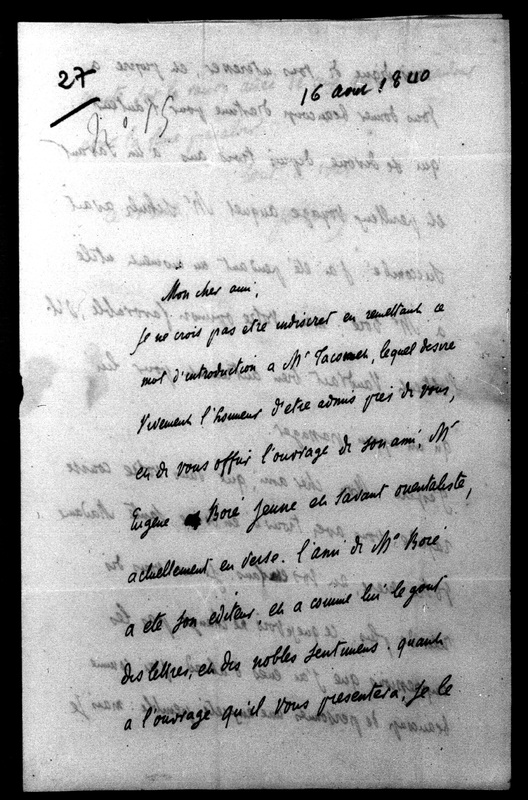 27
16 aout 1840
Mon cher ami,
Je ne crois pas etre indiscret en remettant ce
mot d'introduction a Mr Tacomen, lequel desire
vivement l'honneur d'etre admis près de vous,
et de vous offrir l'ouvrage de son ami Mr
Eugène Boré jeune et savant orientaliste,
actuellement en perse. l'ami de Mr Boré
a eté son editeur, et a comme lui le gout
des lettres, et des nobles sentimens. quant
a l'ouvrage qu'il vous presentera, je le